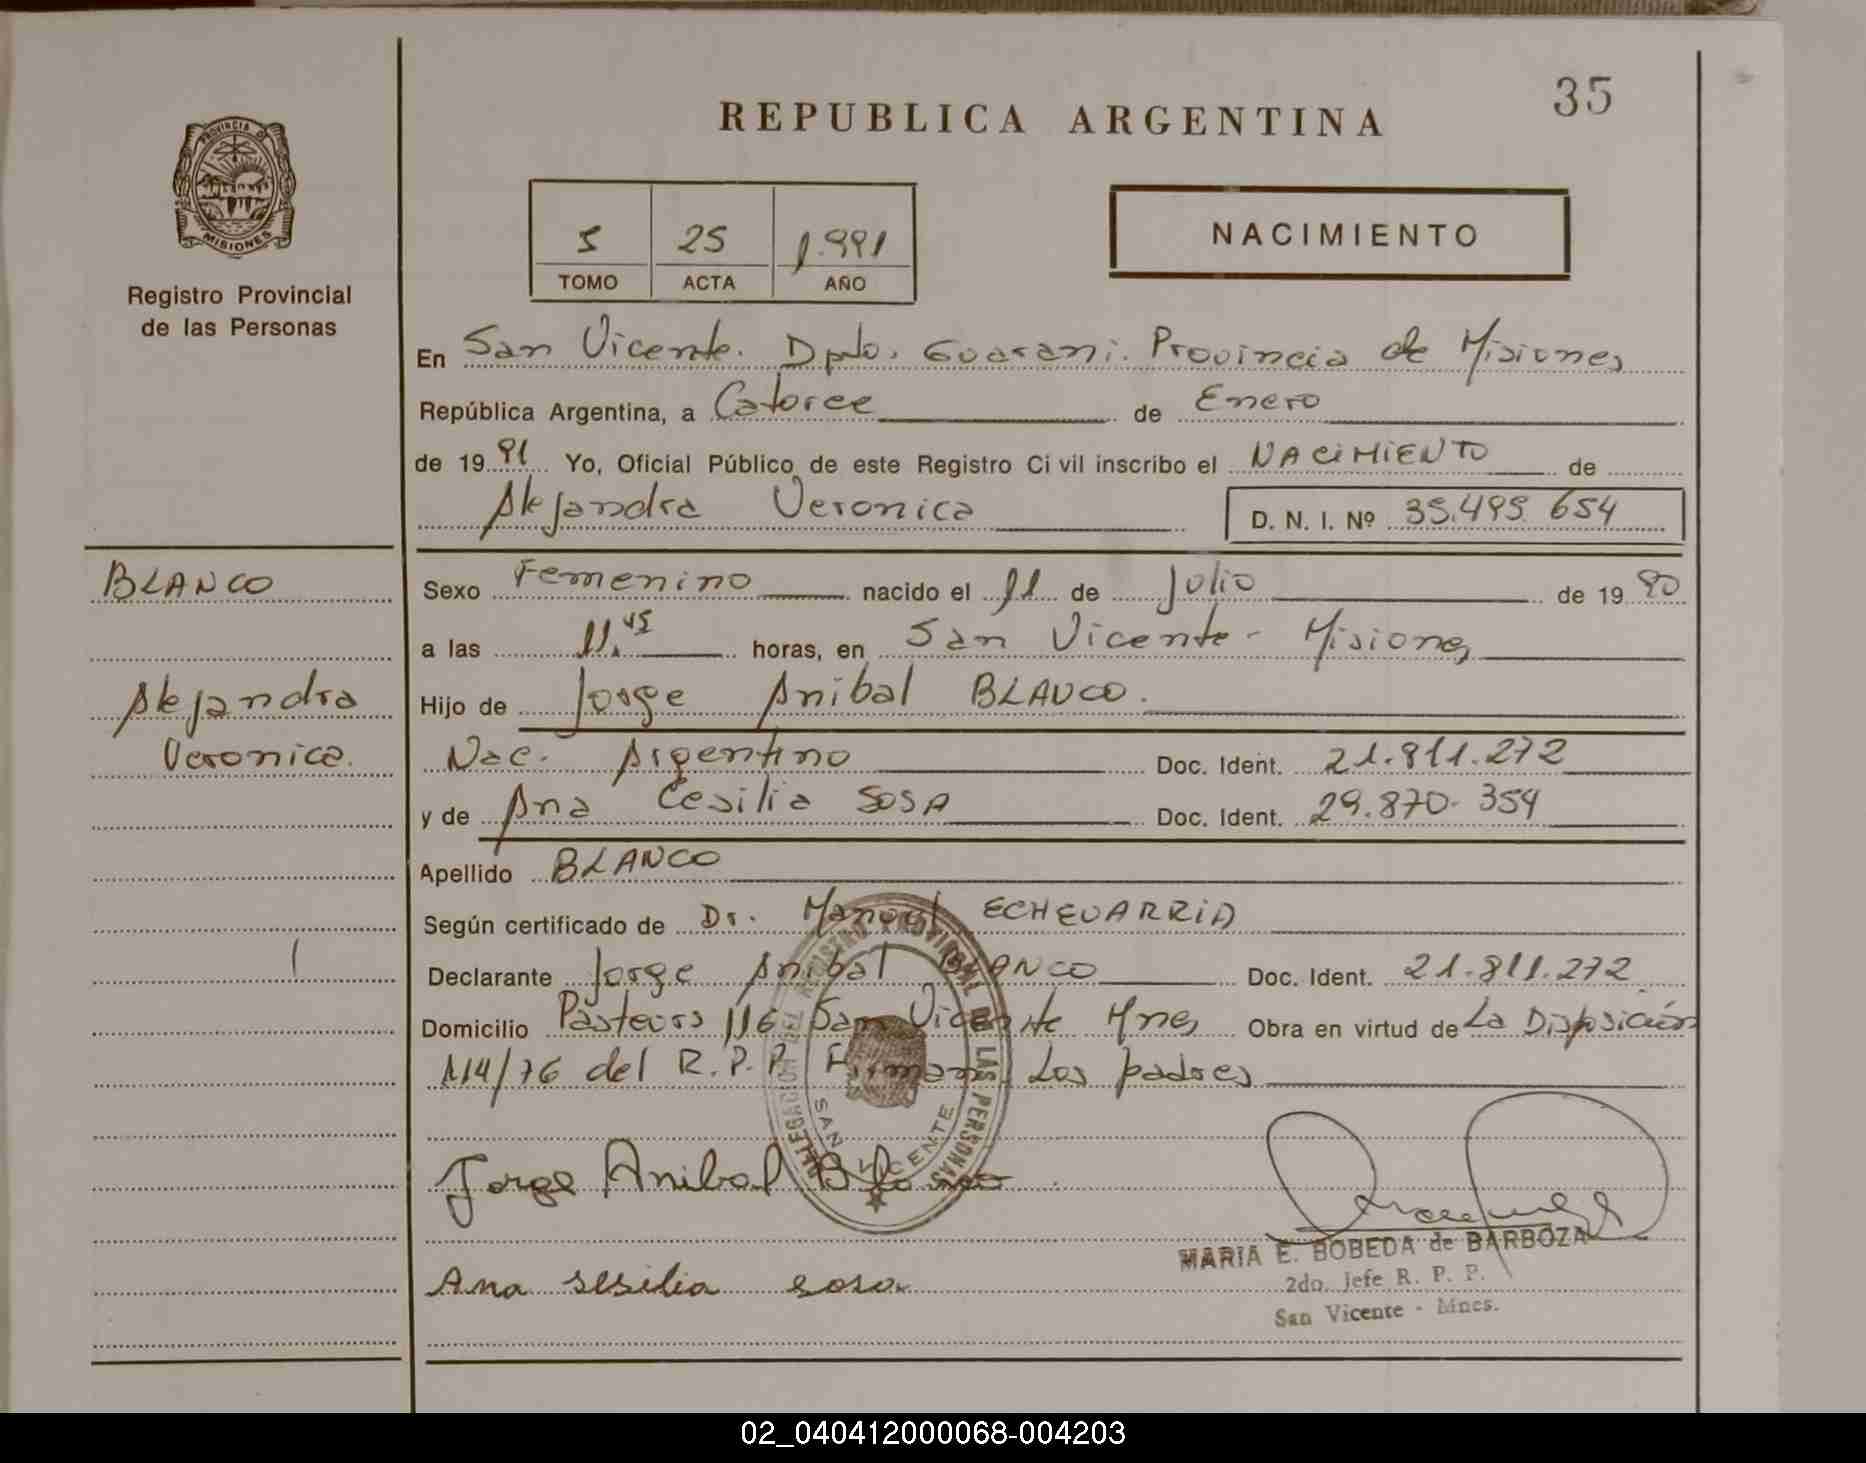 35
REPUBLICA ARGENTINA
PROVINCIA D
MISIONES
Registro Provincial
de las Personas
5 25 1.991
TOMO ACTA AÑO
NACIMIENTO
En San Vicente. Dpto. Guarani. Provincia de Misiones
República Argentina, a Catorce de Enero
de 19 91 Yo, Oficial Público de este Registro Civil inscribo el NACIMIENTO de
Alejandra Veronica D. N. I. Nº 35.495.654
BLANCO
Alejandra
Veronica.
Sexo Femenino nacido el 11 de Julio de 19 90
a las 11.45 horas, en San Vicente - Misiones
Hijo de Jorge Anibal BLANCO.
Nac. Argentino Doc. Ident. 21.811.272
y de Ana Cesilia SOSA Doc. Ident. 29.870.354
Apellido BLANCO
Según certificado de Dr. Manuel ECHEVARRIA
Declarante Jorge Anibal BLANCO Doc. Ident. 21.811.272
Domicilio Pasteurs 116 San Vicente Mnes Obra en virtud de La Disposición
114/76 del R.P.P. Firman Los padres
DELEGACION DEL REGISTRO PROVINCIAL DE LAS PERSONAS
SAN VICENTE
Jorge Anibal Blanco
Ana sesilia sosa
MARIA E. BOBEDA de BARBOZA
2do. Jefe R. P. P.
San Vicente - Mnes.
02_040412000068-004203